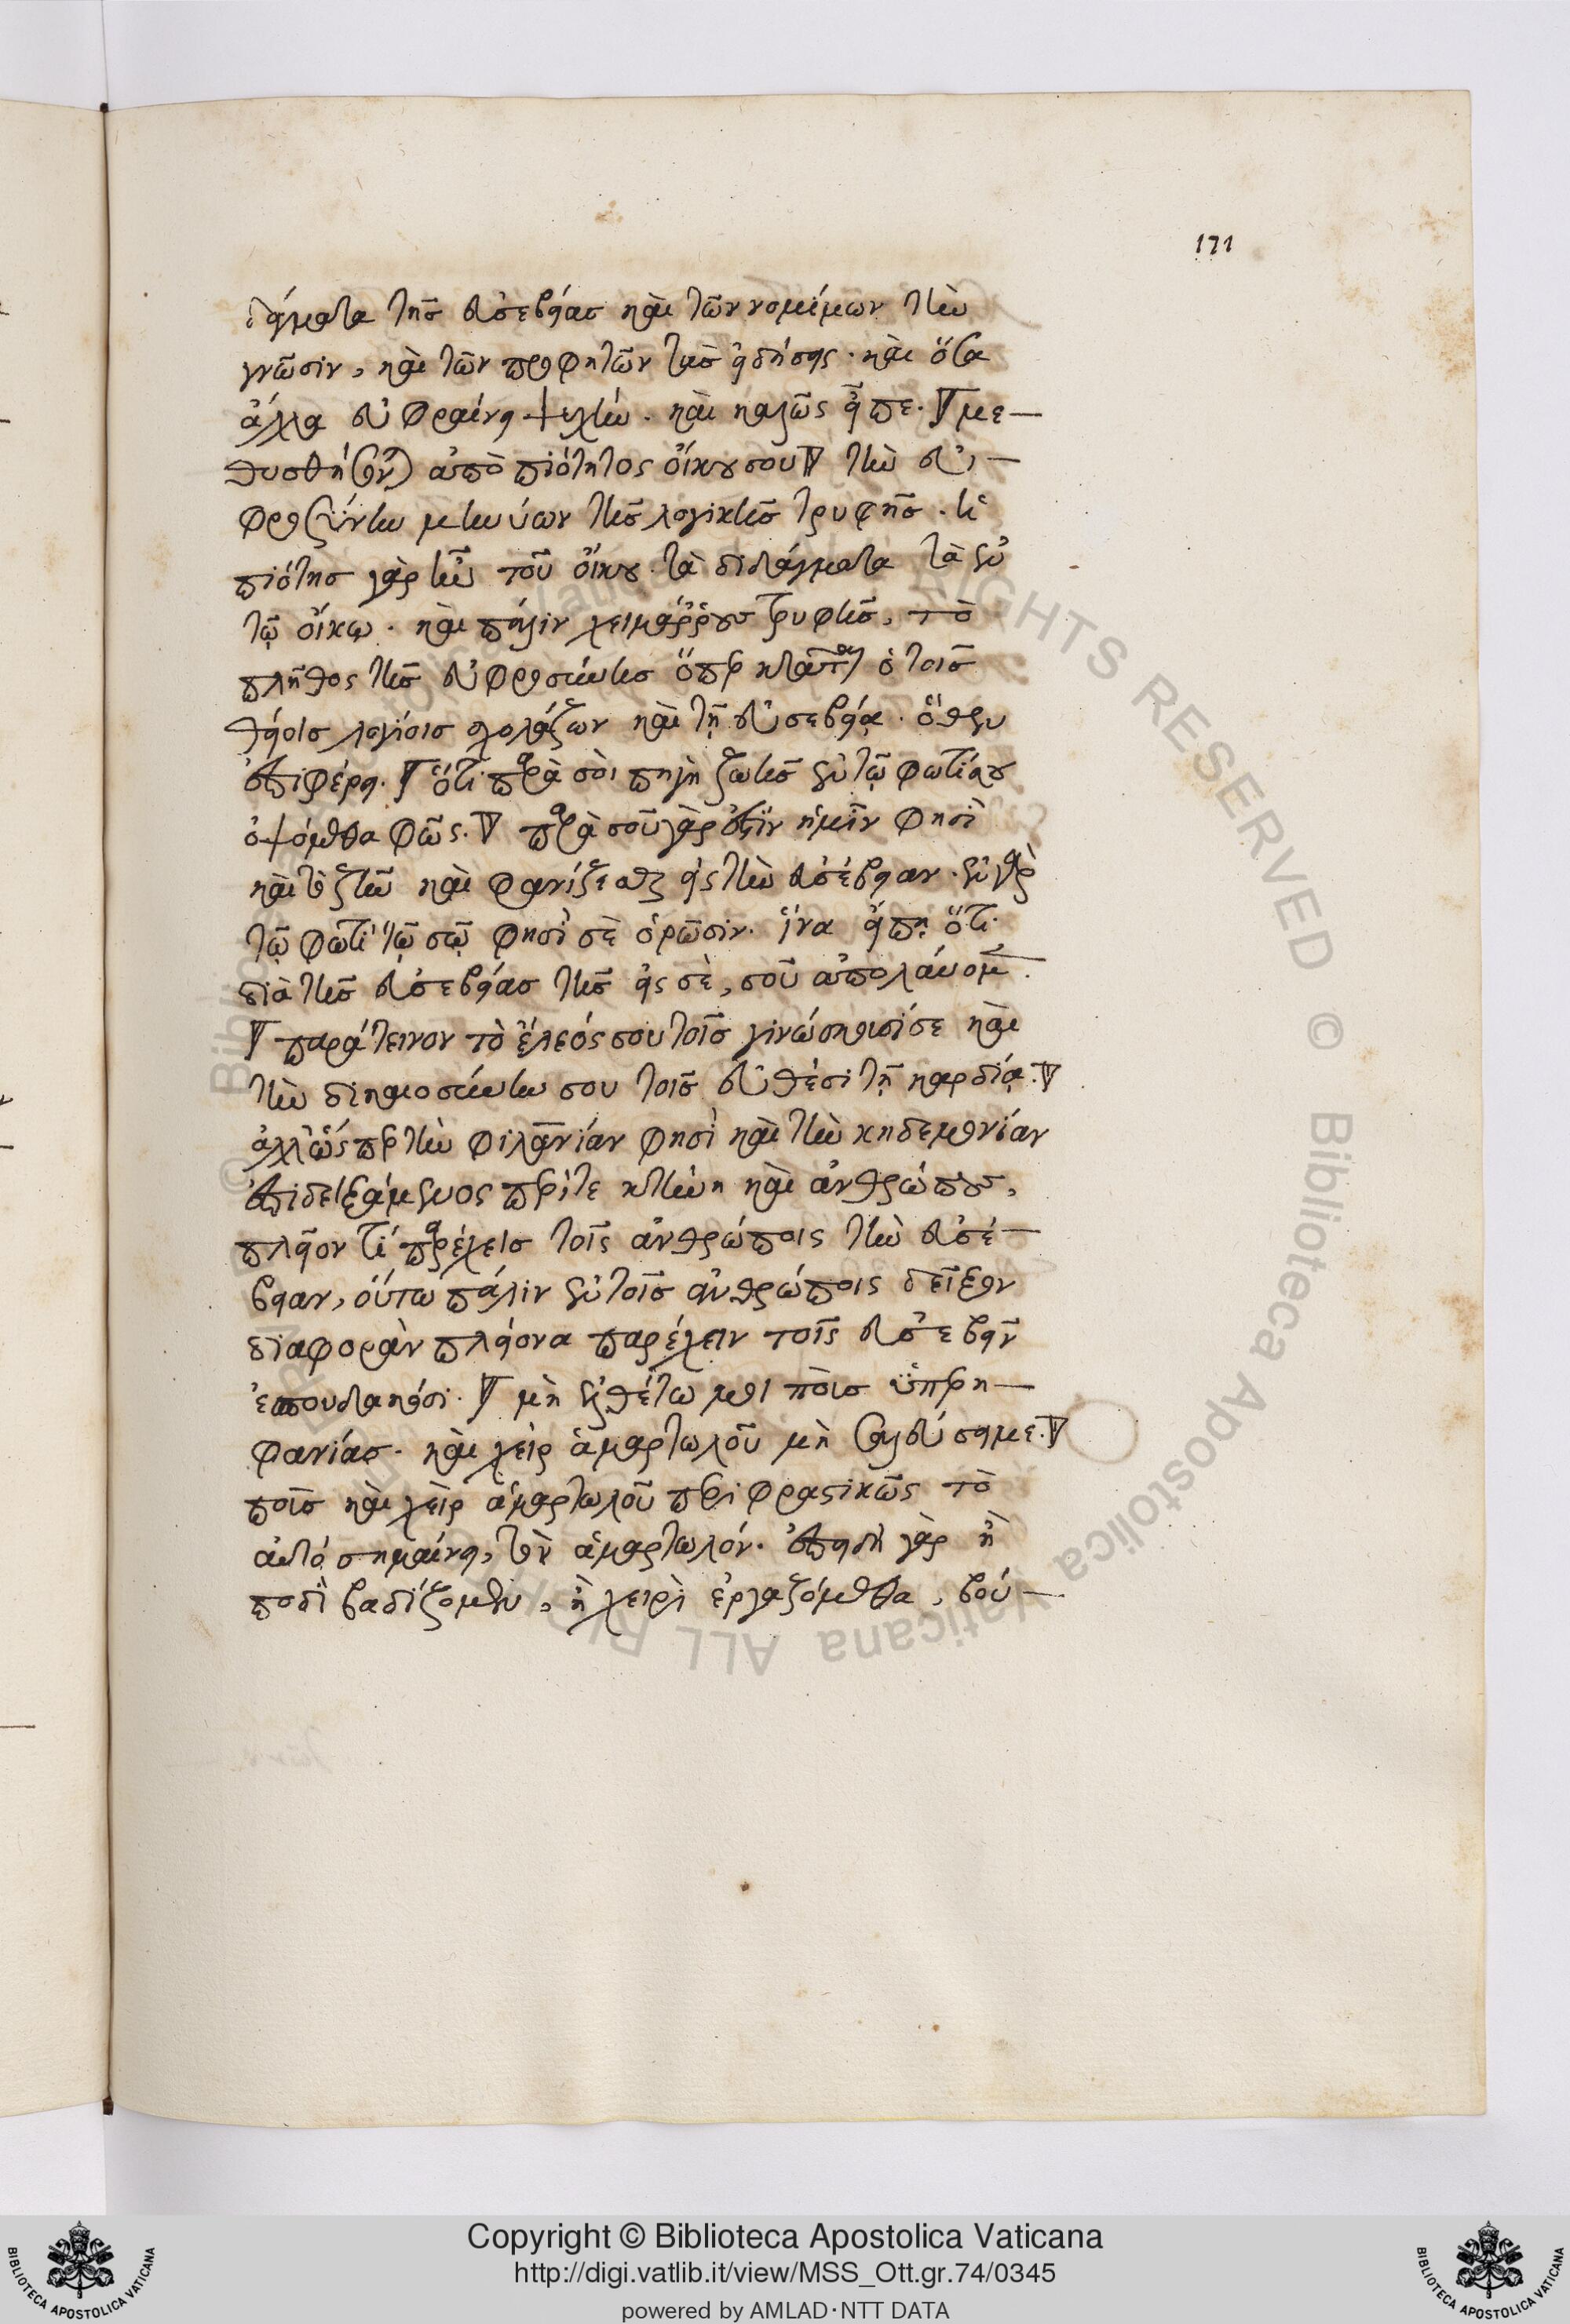 171
δάγματα τῆς εὐσεβείας καὶ τῶν νομίμων τὴν
γνῶσιν, καὶ τῶν προφητῶν τὰς εἰδήσεις. καὶ ὅσα
ἄλλα εὐφραίνει ψυχήν. καὶ καλῶς εἶπε. με-
θυσθήσονται ἀπὸ πιότητος οἴκου σου τὴν εὐ-
φροσύνην μηνύων τῆς λογικῆς τρυφῆς.
πιότης γὰρ ἦν τοῦ οἴκου τὰ διδάγματα τὰ ἐν
τῷ οἴκῳ. καὶ πάλιν χειμάρρους τρυφῆς, τὸ
πλῆθος τῆς εὐφροσύνης ὅπερ κτᾶται ὁ τοῖς
θείοις λογίοις σχολάζων καὶ τῇ εὐσεβείᾳ. ὅθεν
ἐπιφέρει. ὅτι παρὰ σοὶ πηγὴ ζωῆς ἐν τῷ φωτί σου
ὀψόμεθα φῶς. παρὰ σοῦ γάρ ἐστιν ἡμῖν φησὶ
καὶ τὸ ζῆν καὶ φωτίζεσθαι εἰς τὴν εὐσέβειαν. ἐν γὰρ
τῷ φωτὶ τῷ σῷ φησὶ σὲ ὁρῶσιν. ἵνα εἴπῃ ὅτι
διὰ τῆς εὐσεβείας τῆς εἰς σὲ, σοῦ ἀπολαύομεν.
παράτεινον τὸ ἔλεός σου τοῖς γινώσκουσί σε καὶ
τὴν δικαιοσύνην σου τοῖς εὐθέσι τῇ καρδίᾳ.
ἀλλ' ὥσπερ τὴν φιλανθρωπίαν φησὶ καὶ τὴν κηδεμονίαν
ἐπιδειξάμενος περί τε κτήνη καὶ ἀνθρώπους,
πλεῖον τί παρέχεις τοῖς ἀνθρώποις τὴν εὐσέ-
βειαν, οὕτω πάλιν ἐν τοῖς ἀνθρώποις δεῖξον
διαφορὰν πλείονα παρέχειν τοῖς εὐσεβεῖν
ἐσπουδακόσι. μὴ ἐλθέτω μοι ποὺς ὑπερη-
φανίας. καὶ χεὶρ ἁμαρτωλοῦ μὴ σαλεύσαι με.
ποὺς καὶ χεὶρ ἁμαρτωλοῦ περιφραστικῶς τὸ
αὐτό σημαίνει, τὸν ἁμαρτωλόν. ἐπειδὴ γὰρ ἢ
ποδὶ βαδίζομεν, ἢ χειρὶ ἐργαζόμεθα, βού-
Copyright © Biblioteca Apostolica Vaticana
http://digi.vatlib.it/view/MSS_Ott.gr.74/0345
powered by AMLAD·NTT DATA